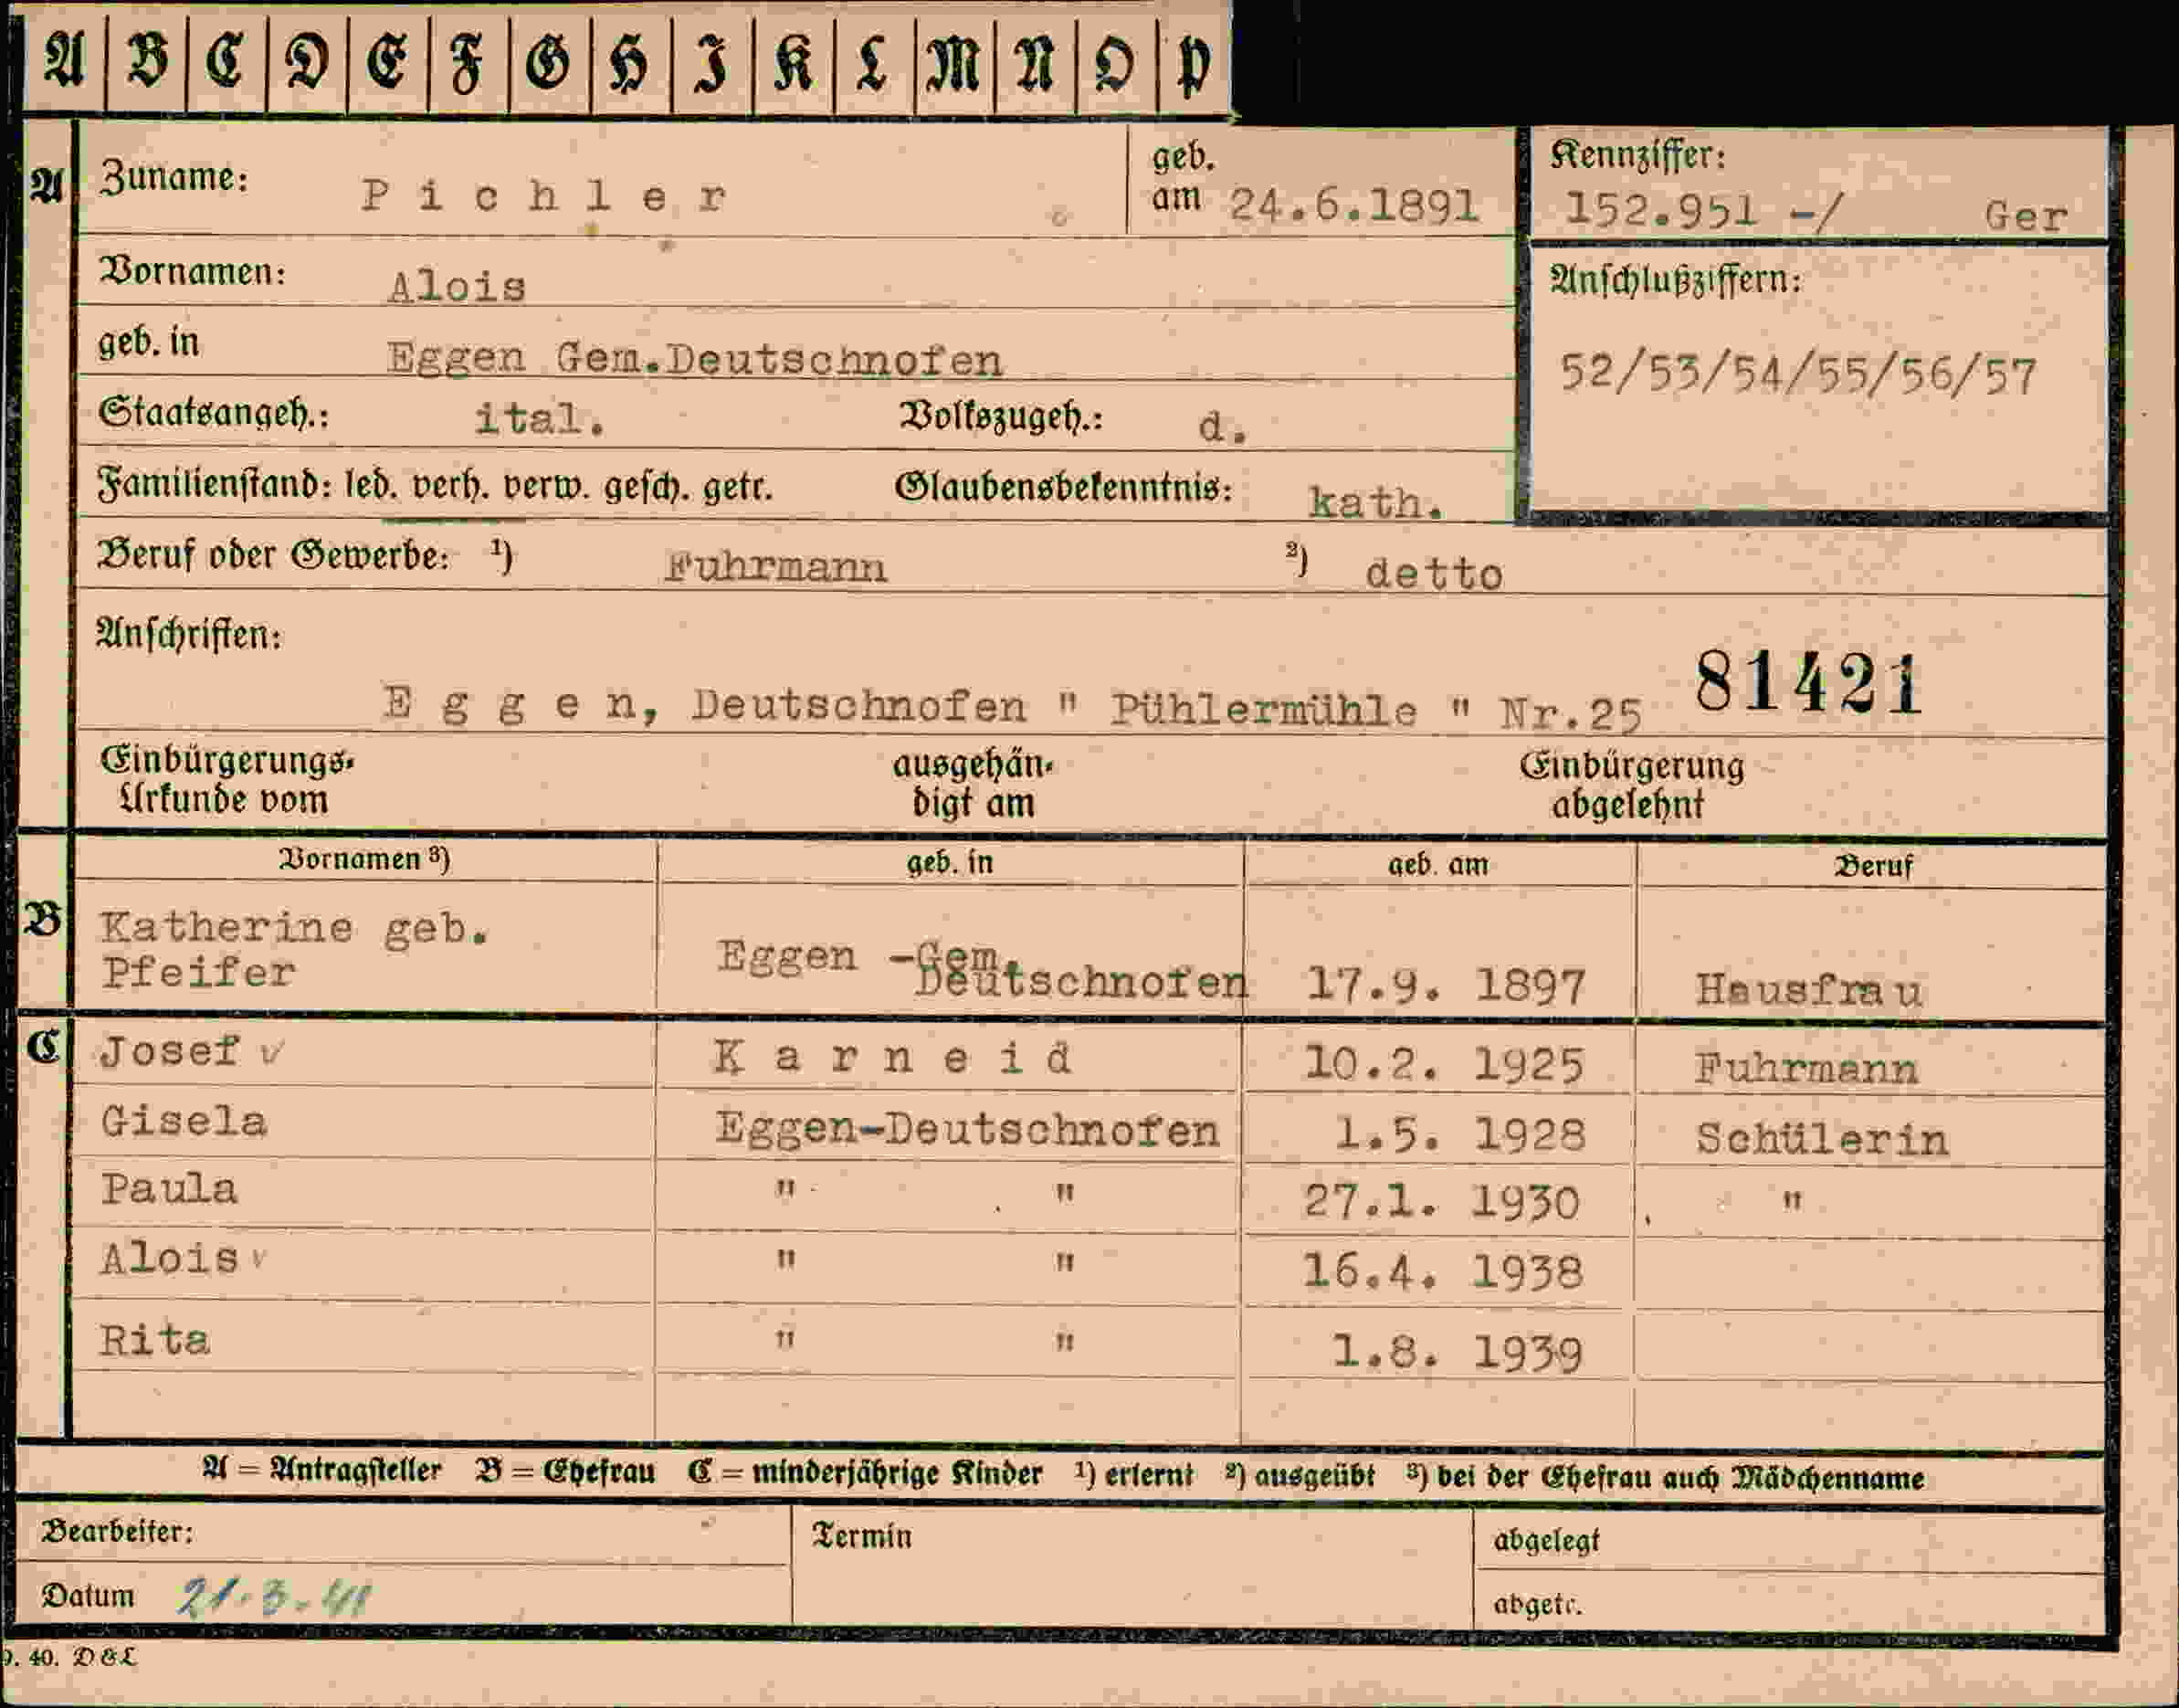 A B C D E F G H I K L M N O P
A Zuname: Pichler geb. am 24.6.1891 Kennziffer: 152.951 -/ Ger
Vornamen: Alois Anschlußziffern:
geb. in Eggen Gem.Deutschnofen 52/53/54/55/56/57
Staatsangeh.: ital. Volkszugeh.: d.
Familienstand: led. verh. verw. gesch. getr. Glaubensbekenntnis: kath.
Beruf oder Gewerbe: ¹) Fuhrmann ²) detto
Anschriften:
Eggen, Deutschnofen " Pühlermühle " Nr.25 81421
Einbürgerungs- ausgehän- Einbürgerung
Urkunde vom digt am abgelehnt
Vornamen ³) geb. in geb. am Beruf
B Katherine geb. Eggen -Gem.
Pfeifer Deutschnofen 17.9. 1897 Hausfrau
C Josef v Karneid 10.2. 1925 Fuhrmann
Gisela Eggen-Deutschnofen 1.5. 1928 Schülerin
Paula " " 27.1. 1930 "
Alois v " " 16.4. 1938
Rita " " 1.8. 1939
A = Antragsteller B = Ehefrau C = minderjährige Kinder ¹) erlernt ²) ausgeübt ³) bei der Ehefrau auch Mädchenname
Bearbeiter: Termin abgelegt
Datum 21.3.41 abgetr.
40. D&L